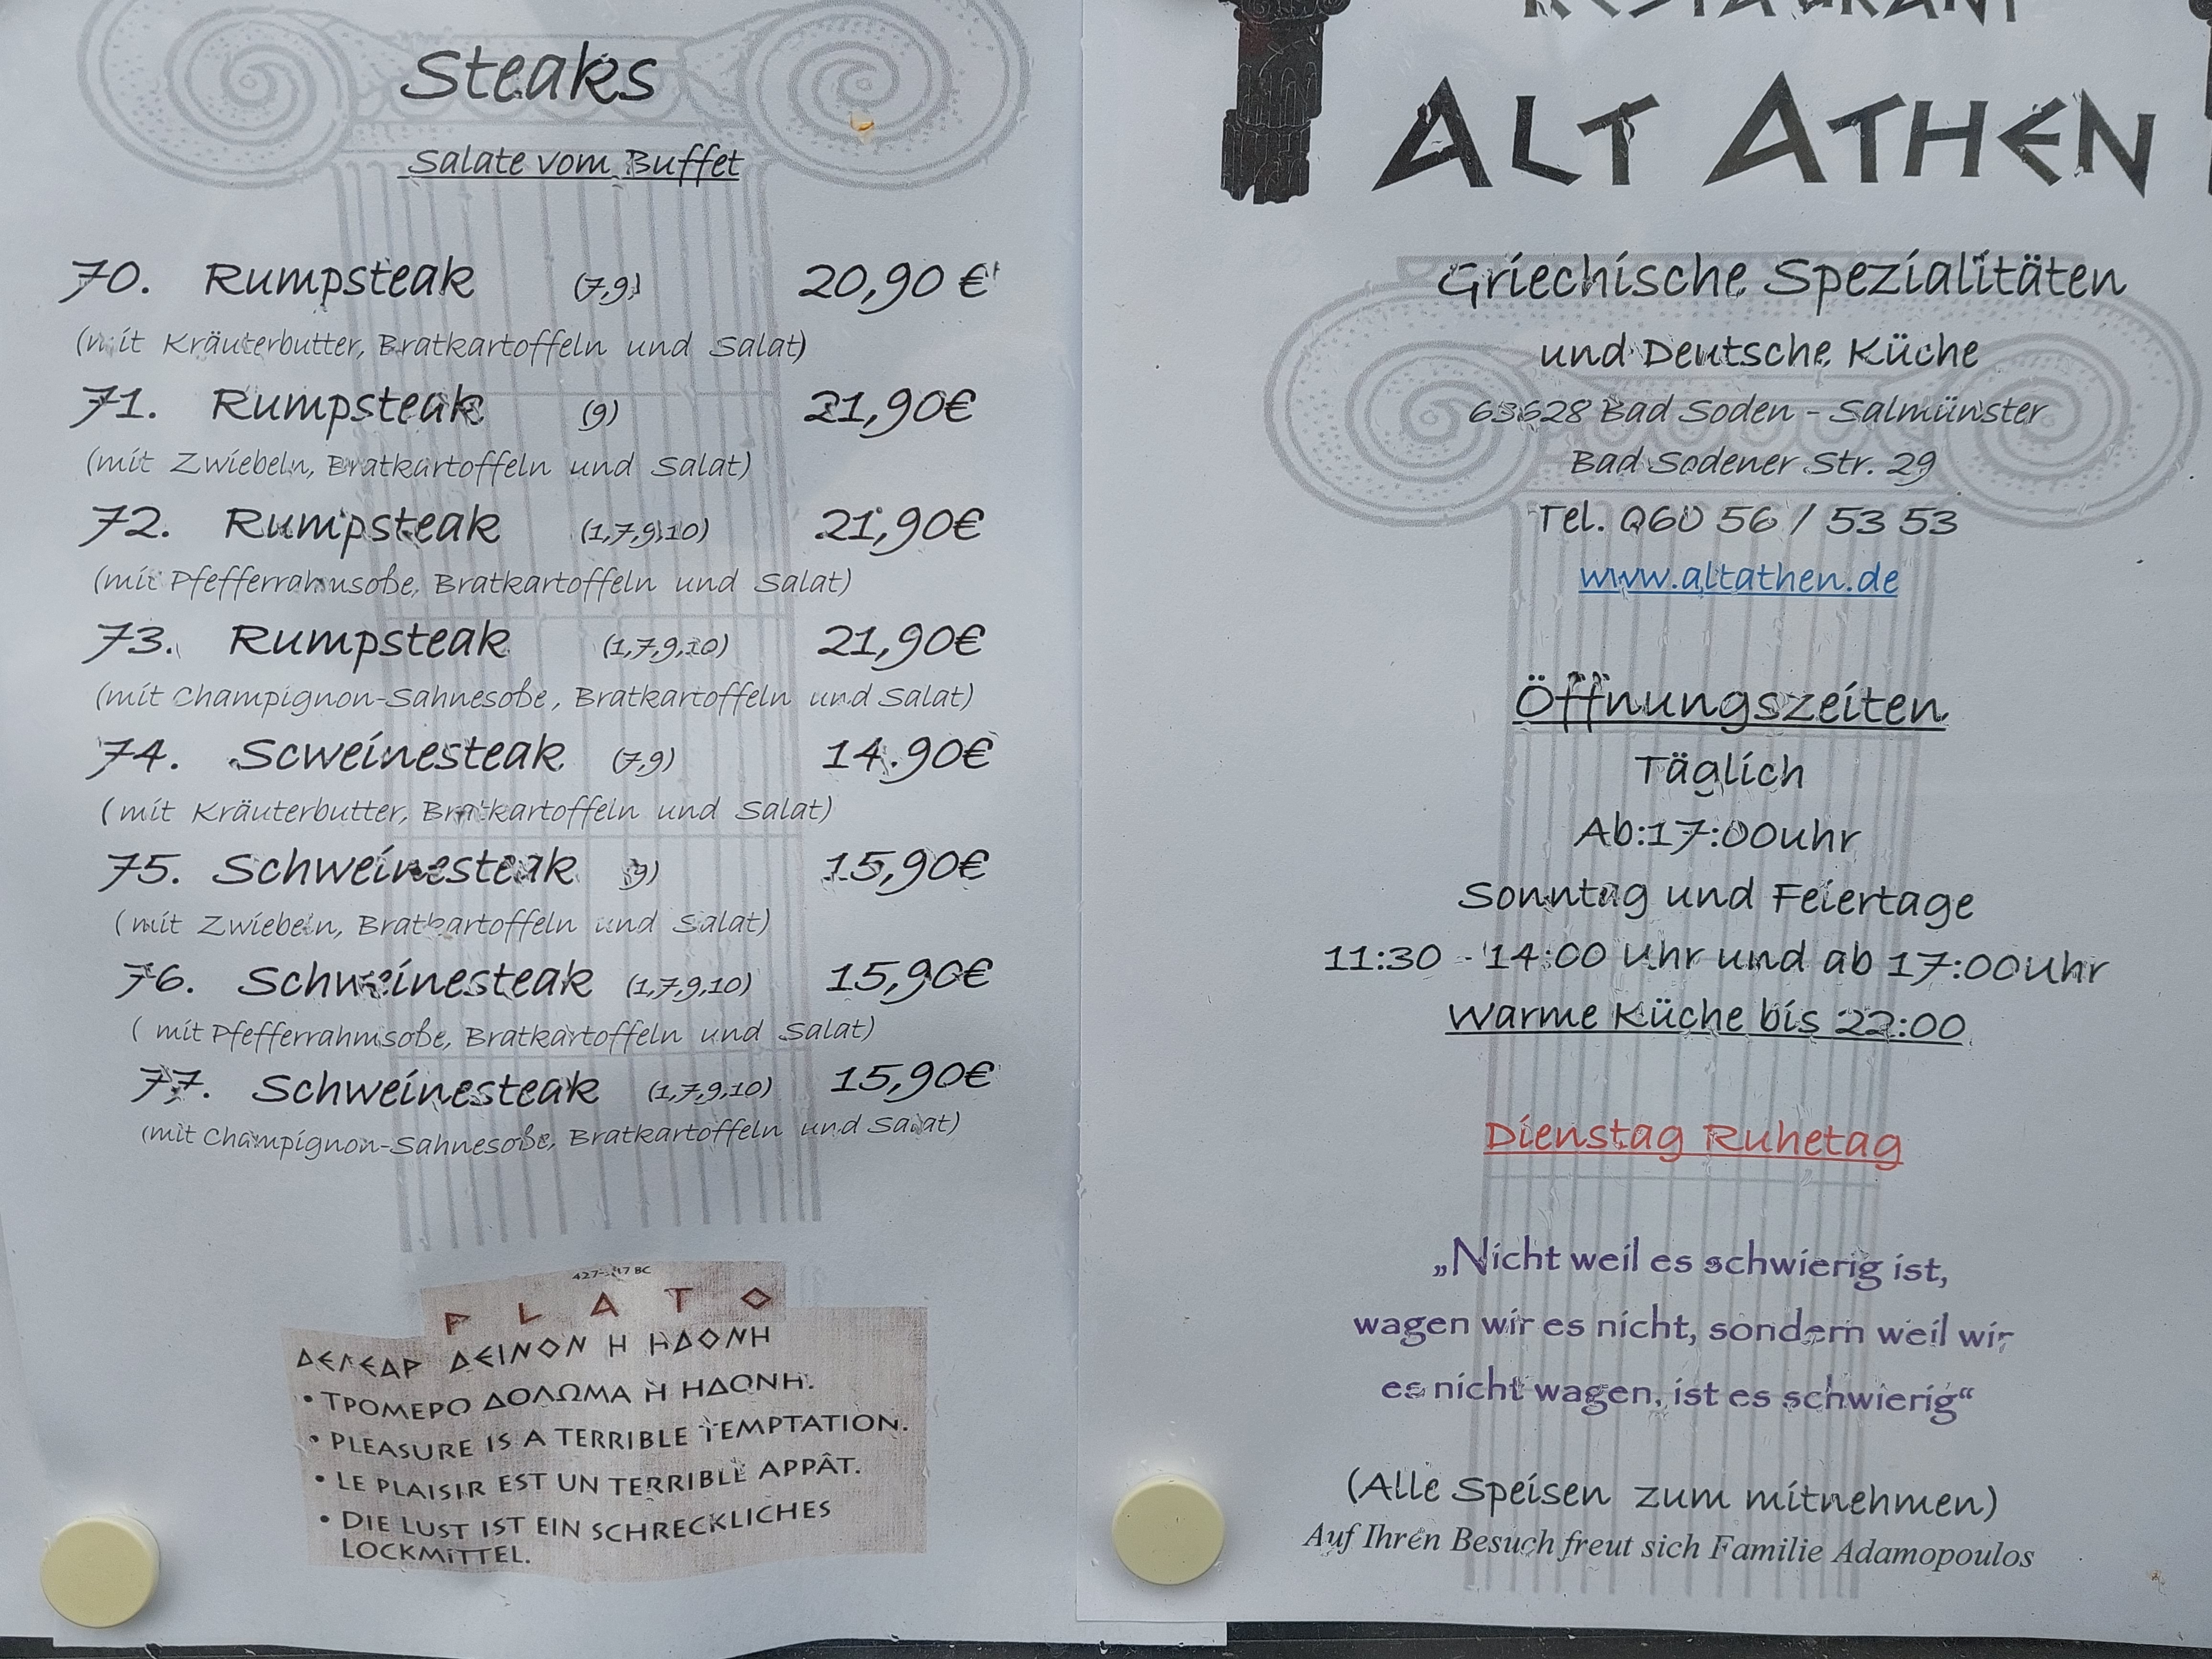 Steaks
Salate vom Buffet
70. Rumpsteak (7,9) 20,90 €
(mit Kräuterbutter, Bratkartoffeln und Salat)
71. Rumpsteak (9) 21,90€
(mit Zwiebeln, Bratkartoffeln und Salat)
72. Rumpsteak (1,7,9,10) 21,90€
(mit Pfefferrahmsoße, Bratkartoffeln und Salat)
73. Rumpsteak (1,7,9,10) 21,90€
(mit Champignon-Sahnesoße, Bratkartoffeln und Salat)
74. Scweinesteak (7,9) 14.90€
( mit Kräuterbutter, Bratkartoffeln und Salat)
75. Schweinesteak (9) 15,90€
( mit Zwiebeln, Bratkartoffeln und Salat)
76. Schweinesteak (1,7,9,10) 15,90€
( mit Pfefferrahmsoße, Bratkartoffeln und Salat)
77. Schweinesteak (1,7,9,10) 15,90€
(mit Champignon-Sahnesoße, Bratkartoffeln und Salat)
427-347 BC
PLATO
ΔΕΛΕΑΡ ΔΕΙΝΟΝ Η ΗΔΟΝΗ
• ΤΡΟΜΕΡΟ ΔΟΛΩΜΑ Η ΗΔΟΝΗ.
• PLEASURE IS A TERRIBLE TEMPTATION.
• LE PLAISIR EST UN TERRIBLE APPÂT.
• DIE LUST IST EIN SCHRECKLICHES
LOCKMITTEL.
RESTAURANT
ALT ATHEN
Griechische Spezialitäten
und Deutsche Küche
63628 Bad Soden - Salmünster
Bad Sodener Str. 29
Tel. 060 56 / 53 53
www.altathen.de
Öffnungszeiten
Täglich
Ab:17:00uhr
Sonntag und Feiertage
11:30 - 14:00 Uhr und ab 17:00Uhr
Warme Küche bis 22:00
Dienstag Ruhetag
„Nicht weil es schwierig ist,
wagen wir es nicht, sondern weil wir
es nicht wagen, ist es schwierig“
(Alle Speisen zum mitnehmen)
Auf Ihren Besuch freut sich Familie Adamopoulos